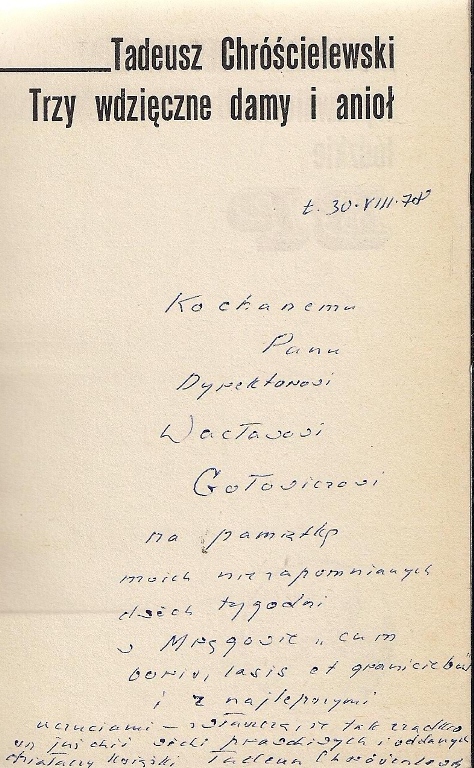 Tadeusz Chróścielewski
Trzy wdzięczne damy i anioł
Ł. 30.VIII.78
Kochanemu
Panu
Dyrektorowi
Wacławowi
Gołowiczowi
na pamiątkę
moich niezapomnianych
dwóch tygodni
w Mrągowie „cum
bonis, lasis et
i z najlepszymi
uczuciami – że tak rzadko
prawdziwych i oddanych
działaczy książki Tadeusz Chróścielewski